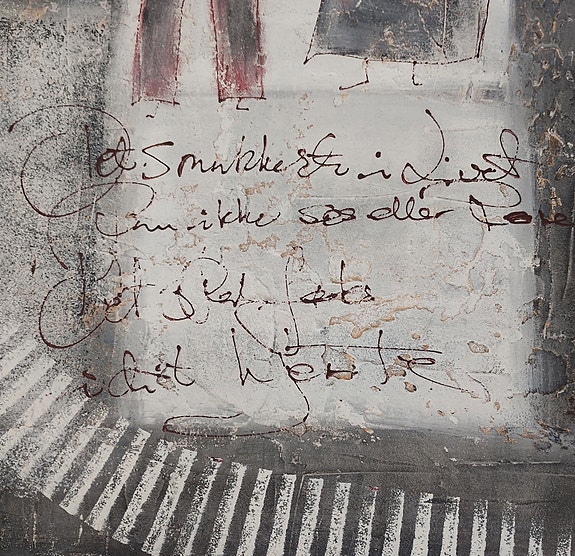 Det smukkeste i Livet
kan ikke ses eller
Det skal føles
i dit hjerte